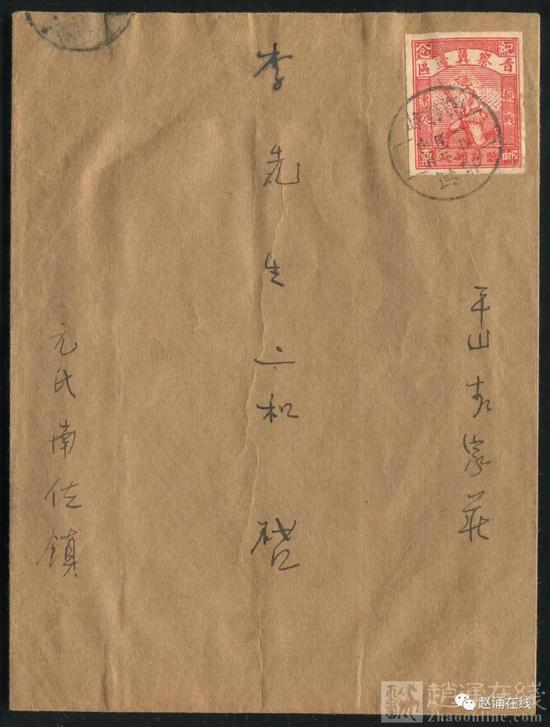 紀念
晉察冀邊區
抗戰
軍人
平山
家莊
李先生 和 啓
元氏南佐鎮
趙涌在线
zhaoonline.com
赵涌在线